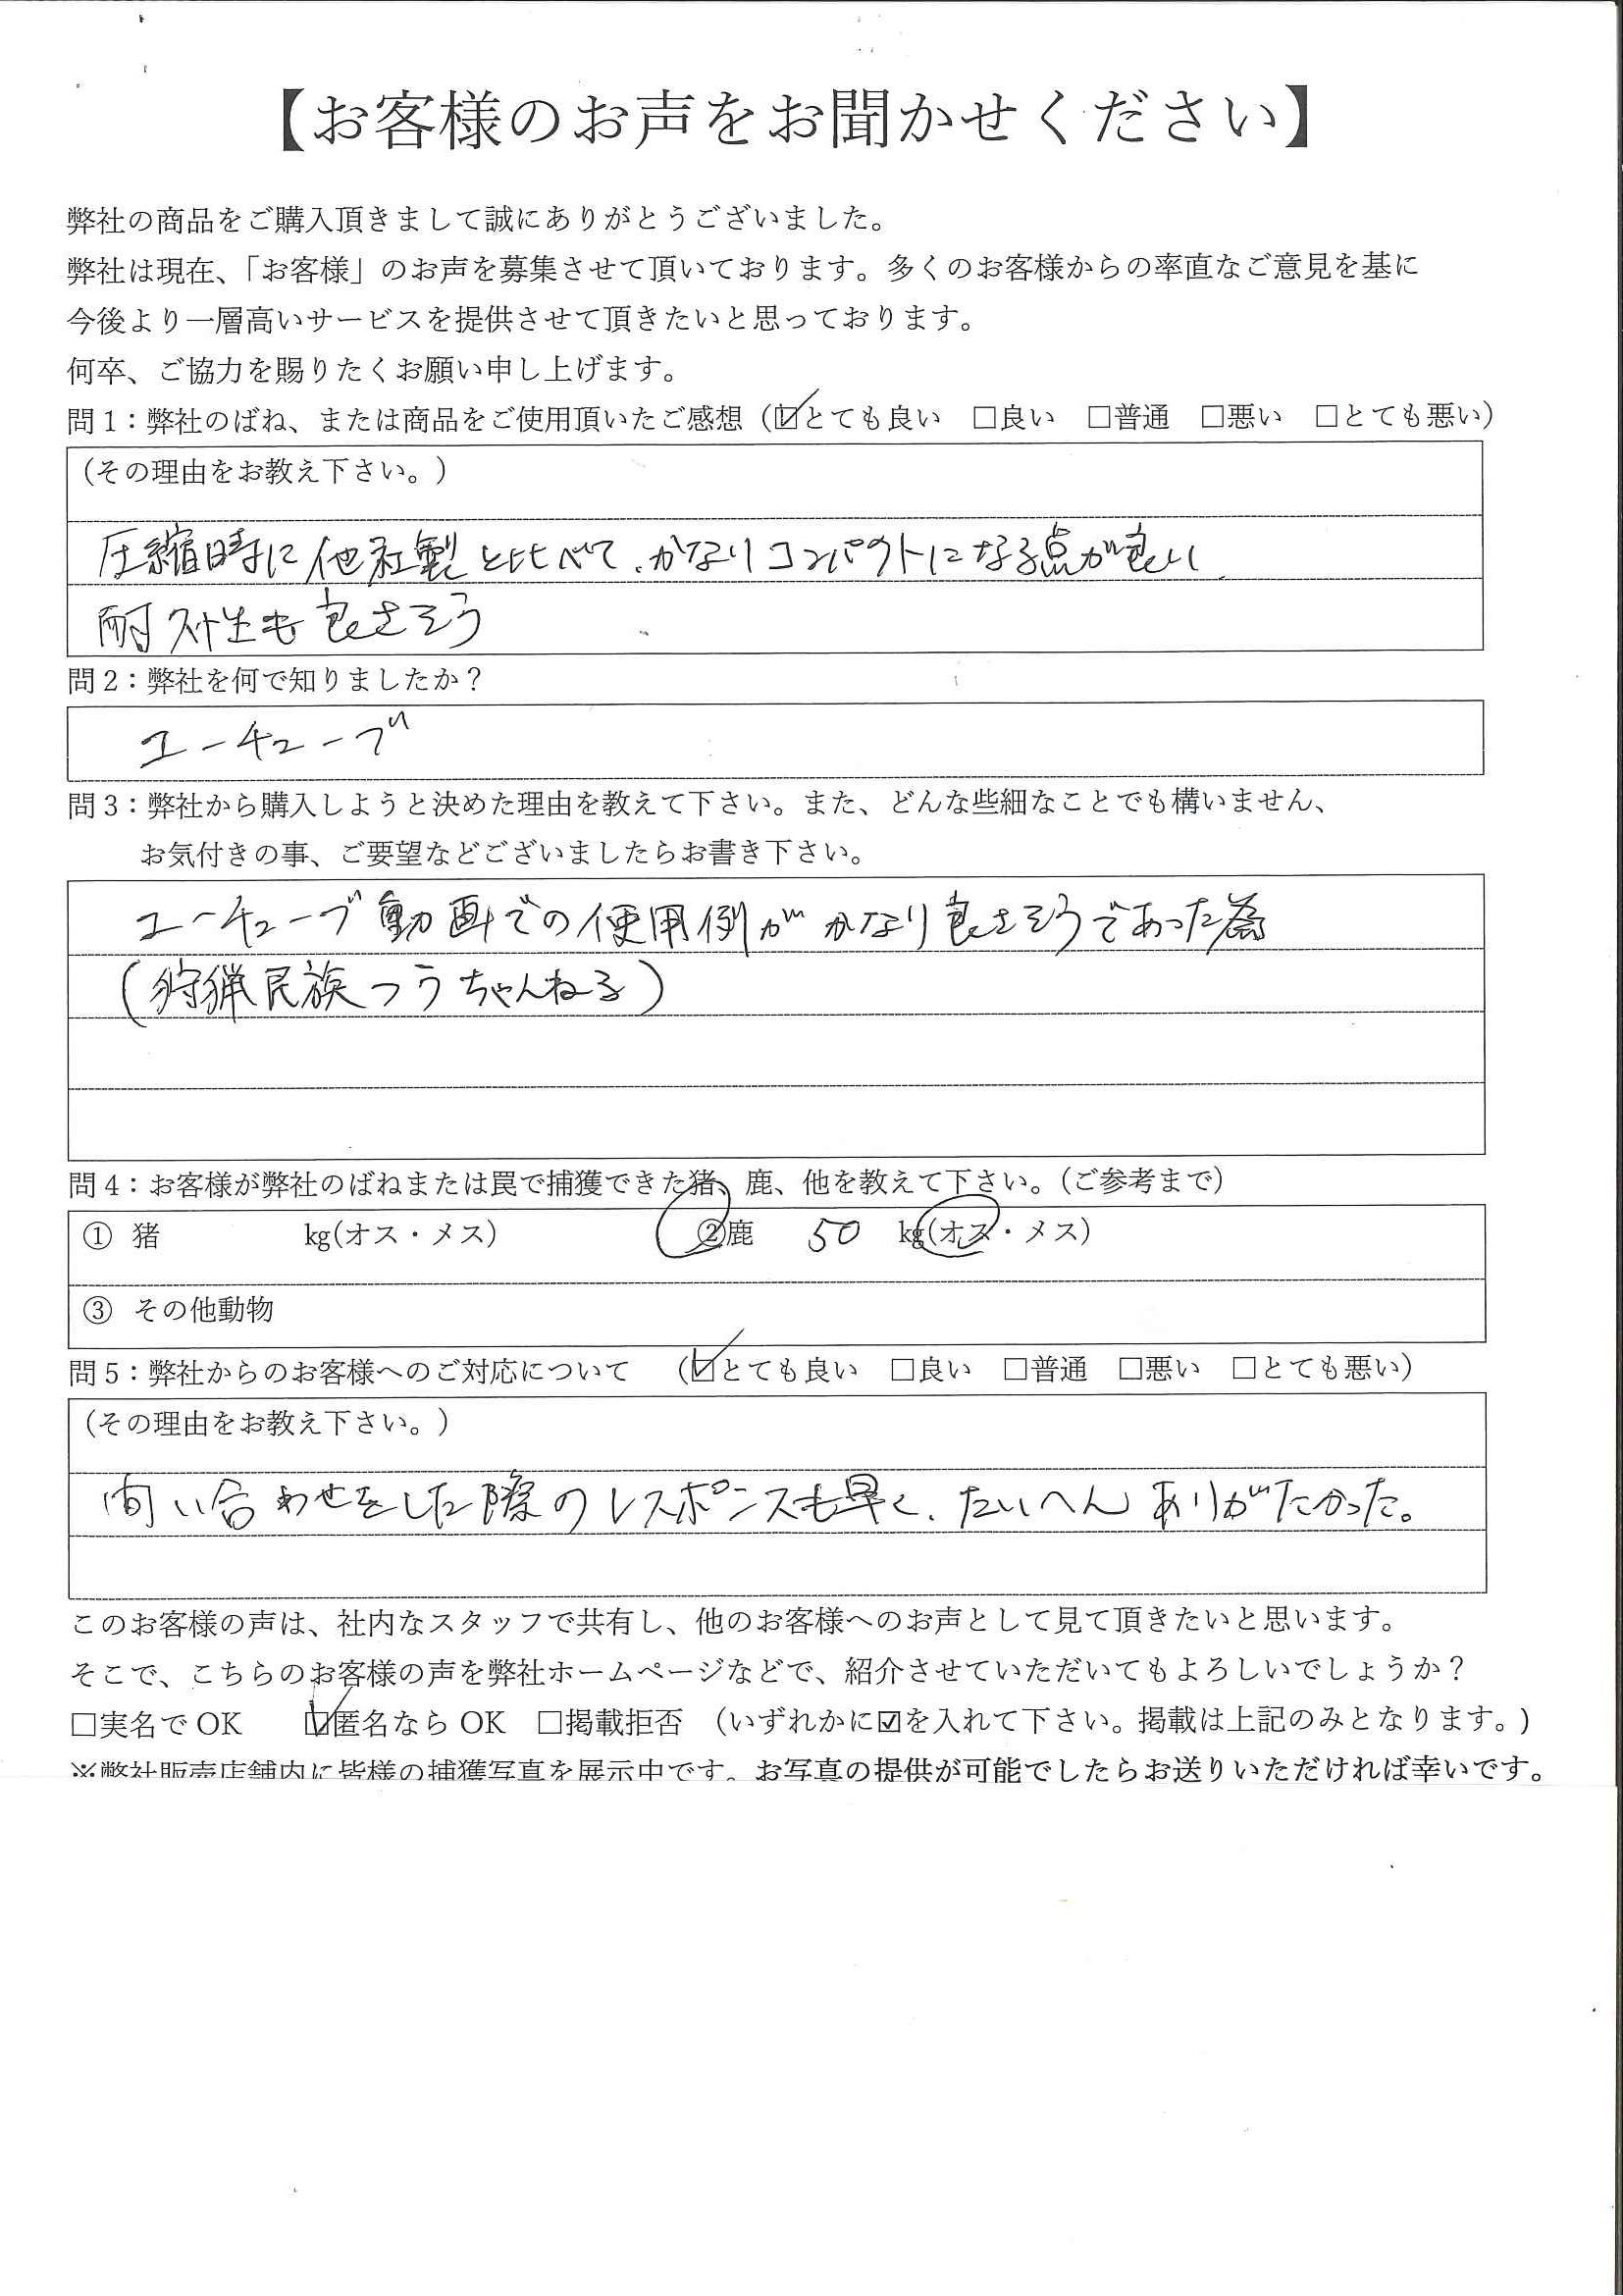 【お客様のお声をお聞かせください】
弊社の商品をご購入頂きまして誠にありがとうございました。
弊社は現在、「お客様」のお声を募集させて頂いております。多くのお客様からの率直なご意見を基に
今後より一層高いサービスを提供させて頂きたいと思っております。
何卒、ご協力を賜りたくお願い申し上げます。
問1：弊社のばね、または商品をご使用頂いたご感想（☑とても良い　□良い　□普通　□悪い　□とても悪い）
（その理由をお教え下さい。）
圧縮時に他社製と比べて、かなりコンパクトになる点が良い、
耐久性も良さそう
問2：弊社を何で知りましたか？
ユーチューブ
問3：弊社から購入しようと決めた理由を教えて下さい。また、どんな些細なことでも構いません、
お気付きの事、ご要望などございましたらお書き下さい。
ユーチューブ動画での使用例がかなり良さそうであった為
（狩猟民族つうちゃんねる）
問4：お客様が弊社のばねまたは罠で捕獲できた猪、鹿、他を教えて下さい。（ご参考まで）
① 猪　　　　　kg(オス・メス)　　　　　②鹿　50　kg(オス・メス)
③ その他動物
問5：弊社からのお客様へのご対応について　（☑とても良い　□良い　□普通　□悪い　□とても悪い）
（その理由をお教え下さい。）
問い合わせをした際のレスポンスも早く、たいへんありがたかった。
このお客様の声は、社内なスタッフで共有し、他のお客様へのお声として見て頂きたいと思います。
そこで、こちらのお客様の声を弊社ホームページなどで、紹介させていただいてもよろしいでしょうか？
□実名でOK　　☑匿名ならOK　□掲載拒否　（いずれかに☑を入れて下さい。掲載は上記のみとなります。）
※弊社販売店舗内に皆様の捕獲写真を展示中です。お写真の提供が可能でしたらお送りいただければ幸いです。